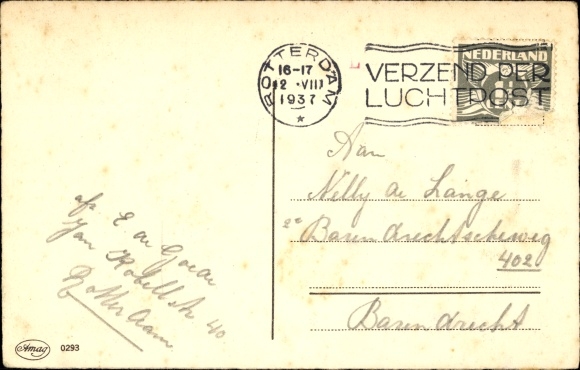 ROTTERDAM
16-17
12 VIII
1937
VERZEND PER
LUCHTPOST
NEDERLAND
Aan
Nelly de Lange
2e Barendrechtscheweg
402
Barendrecht
afz E de
Jan Kobellstr 40
Rotterdam
Amag 0293